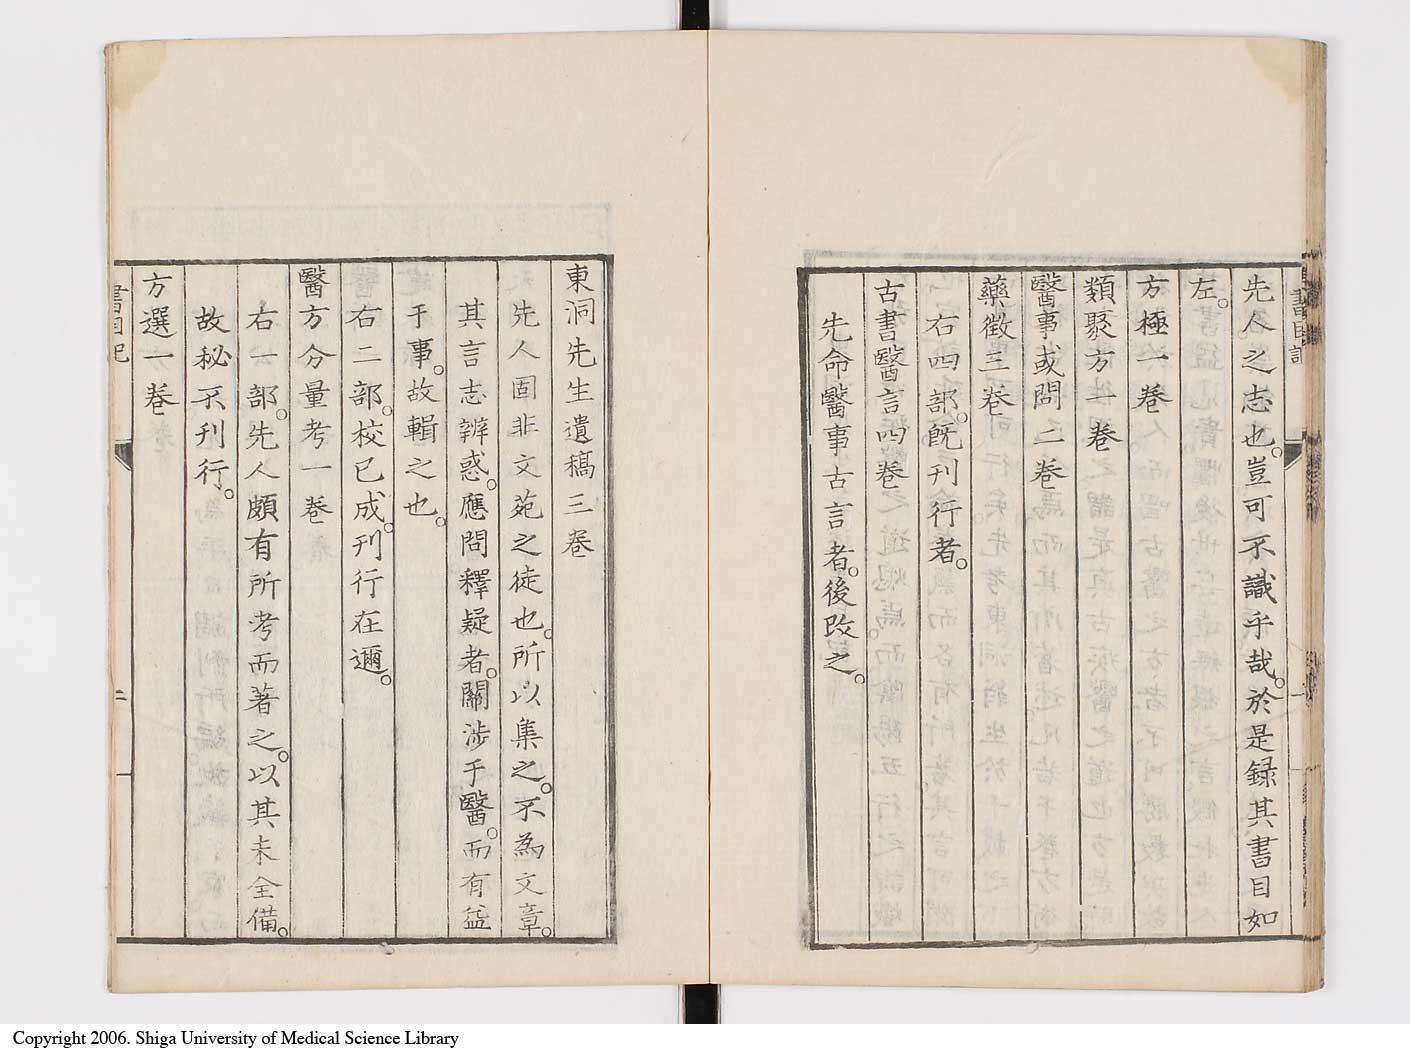 先人之志也。豈可不識乎哉。於是録其書目如
左。
方極一卷
類聚方一卷
醫事或問二卷
藥徵三卷
右四部。既刊行者。
古書醫言四卷
先命醫事古言者。後改之。
東洞先生遺稿三卷
先人固非文苑之徒也。所以集之。不為文章。
其言志辨惑。應問釋疑者。關涉乎醫。而有益
于事。故輯之也。
右二部。校已成。刊行在邇。
醫方分量考一卷
右一部。先人頗有所考而著之。以其未全備。
故秘不刊行。
方選一卷
Copyright 2006. Shiga University of Medical Science Library